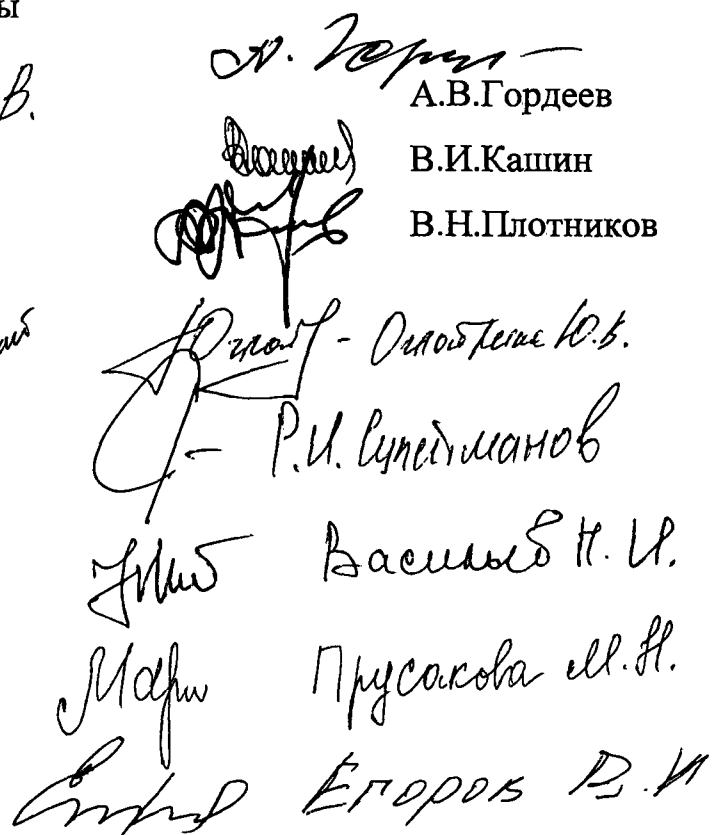 ы
В.
А.В.Гордеев
В.И.Кашин
В.Н.Плотников
Оглоблина Ю.В.
Р.И. Сулейманов
Васильев Н. И.
Прусакова М.Н.
Егоров В.И